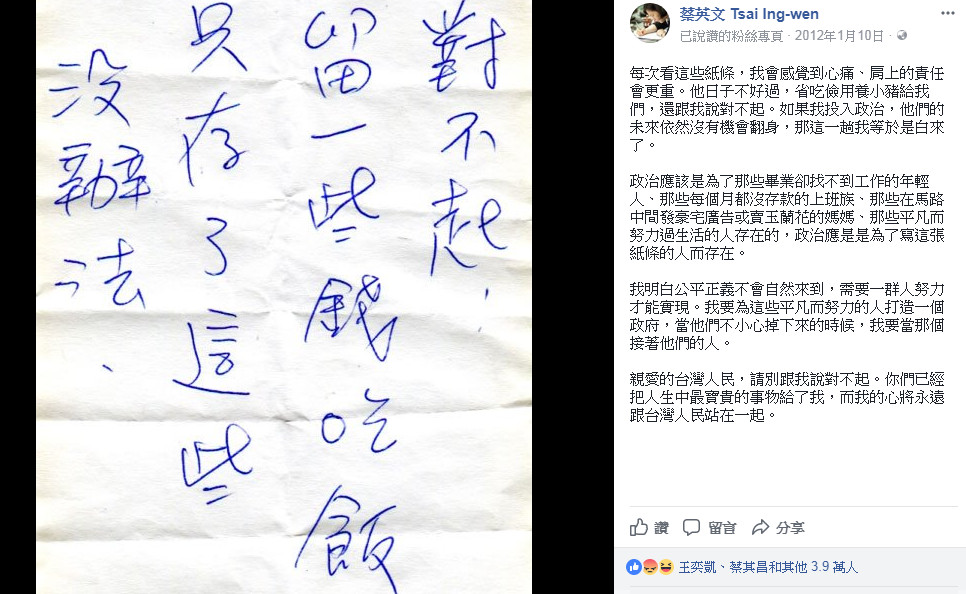 對不起、
留一些錢吃飯
只存了這些
沒辦法、
蔡英文 Tsai Ing-wen
已說讚的粉絲專頁 · 2012年1月10日 ·
每次看這些紙條，我會感覺到心痛、肩上的責任
會更重。他日子不好過，省吃儉用養小豬給我
們，還跟我說對不起。如果我投入政治，他們的
未來依然沒有機會翻身，那這一趟我等於是白來
了。
政治應該是為了那些畢業卻找不到工作的年輕
人、那些每個月都沒存款的上班族、那些在馬路
中間發豪宅廣告或賣玉蘭花的媽媽、那些平凡而
努力過生活的人存在的，政治應是是為了寫這張
紙條的人而存在。
我明白公平正義不會自然來到，需要一群人努力
才能實現。我要為這些平凡而努力的人打造一個
政府，當他們不小心掉下來的時候，我要當那個
接著他們的人。
親愛的台灣人民，請別跟我說對不起。你們已經
把人生中最寶貴的事物給了我，而我的心將永遠
跟台灣人民站在一起。
讚 留言 分享
王奕凱、蔡其昌和其他 3.9 萬人